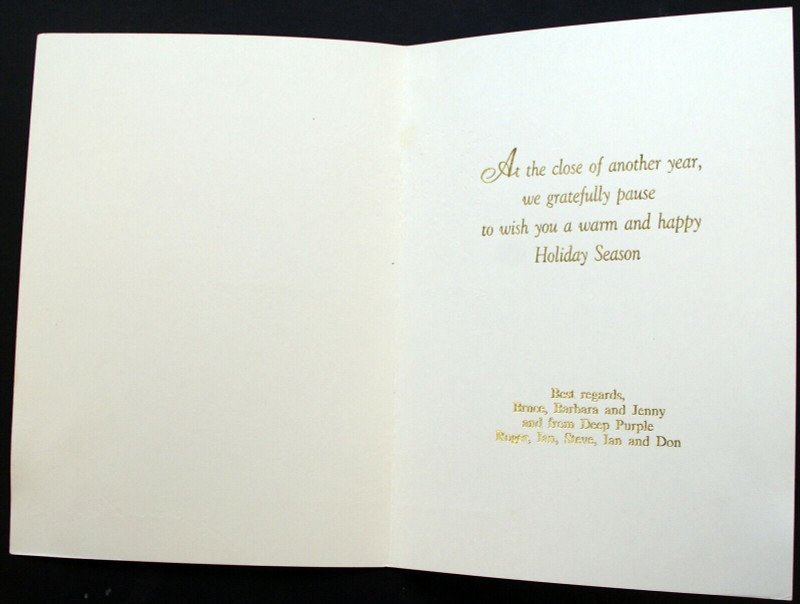 At the close of another year,
we gratefully pause
to wish you a warm and happy
Holiday Season
Best regards,
Bruce, Barbara and Jenny
and from Deep Purple
Roger, Ian, Steve, Ian and Don